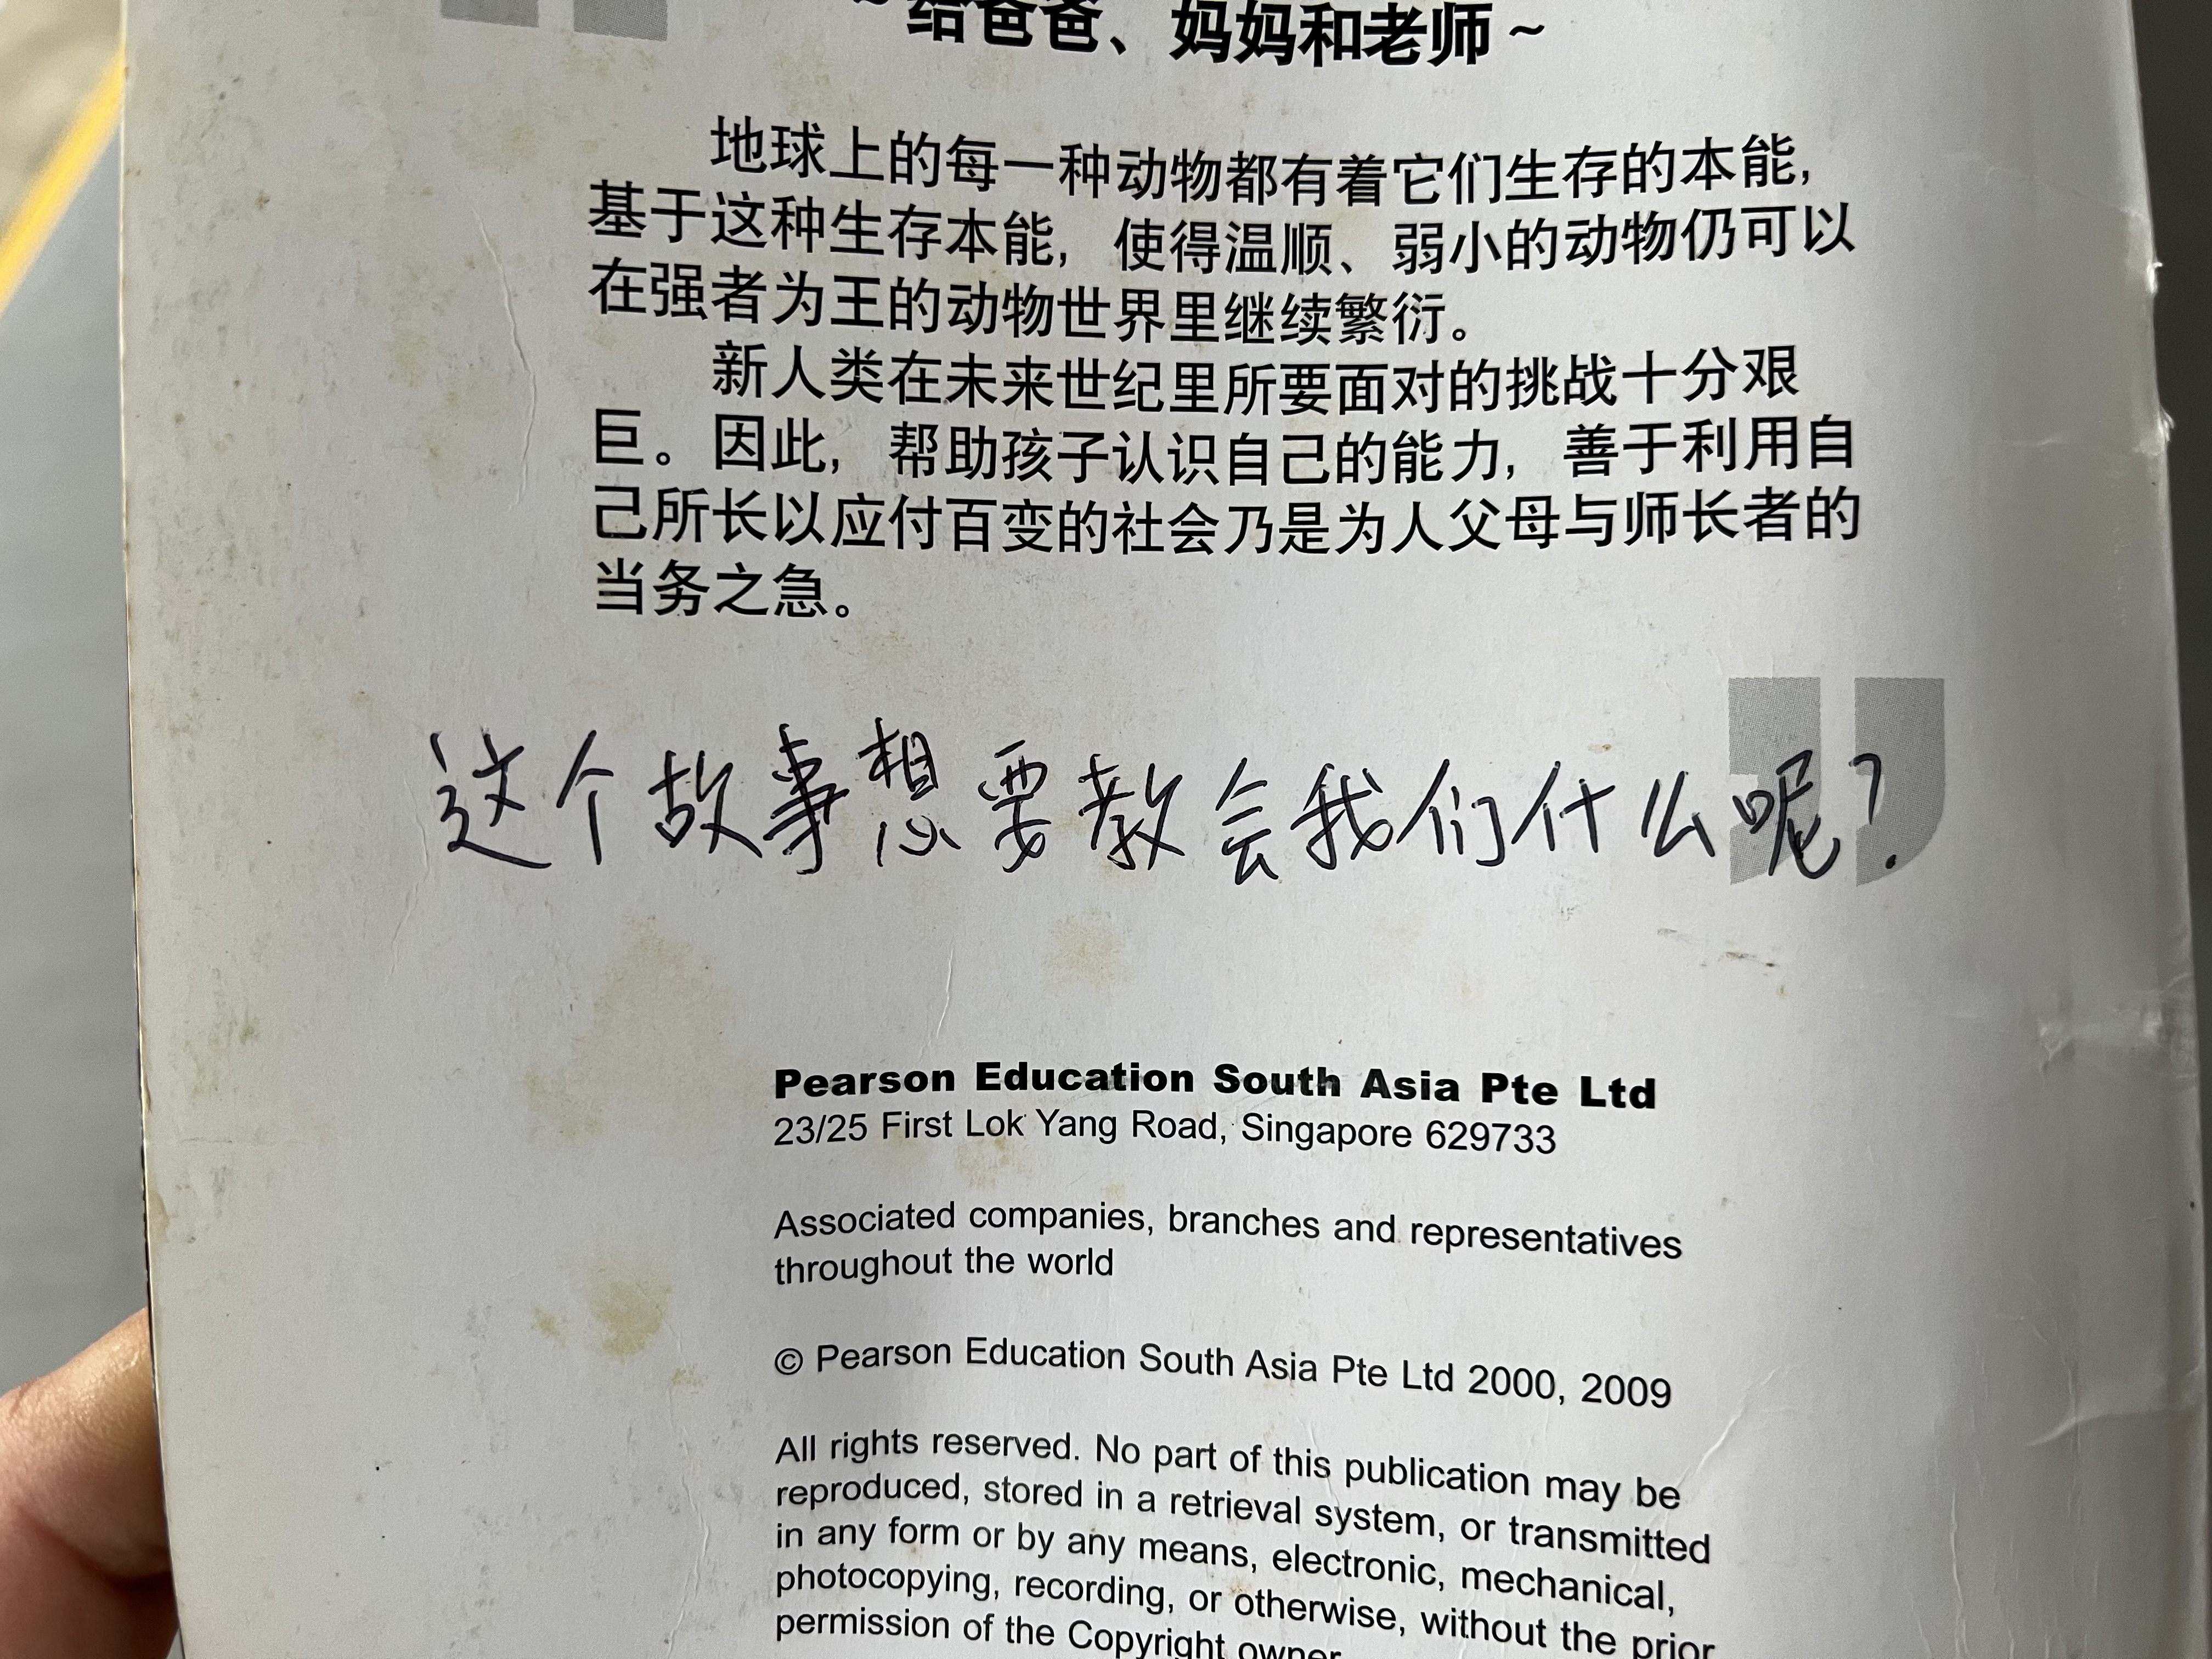 ~ 给爸爸、妈妈和老师 ~
地球上的每一种动物都有着它们生存的本能，
基于这种生存本能，使得温顺、弱小的动物仍可以
在强者为王的动物世界里继续繁衍。
新人类在未来世纪里所要面对的挑战十分艰
巨。因此，帮助孩子认识自己的能力，善于利用自
己所长以应付百变的社会乃是为人父母与师长者的
当务之急。
这个故事想要教会我们什么呢？
Pearson Education South Asia Pte Ltd
23/25 First Lok Yang Road, Singapore 629733
Associated companies, branches and representatives
throughout the world
© Pearson Education South Asia Pte Ltd 2000, 2009
All rights reserved. No part of this publication may be
reproduced, stored in a retrieval system, or transmitted
in any form or by any means, electronic, mechanical,
photocopying, recording, or otherwise, without the prior
permission of the Copyright owner